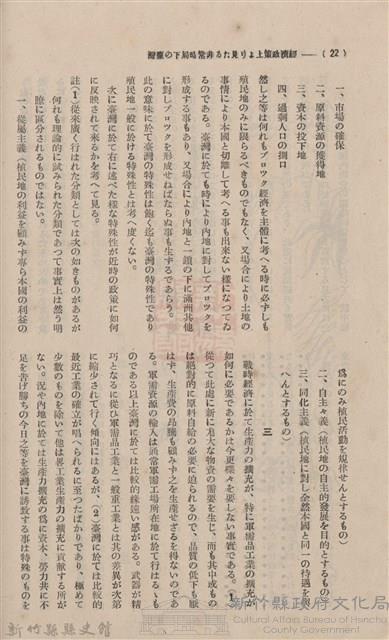 (22) ── 經濟政策上より見たる非常時局下の臺灣
一、市場の確保
二、原料資源の獲得地
三、資本の投下地
四、過剩人口の捌口
然し之等は何れもブロック經濟を主體に考へる時に必ずしも
殖民地のみに限らるべきものでもなく、又場合により土地の
事情により本國と切離して考へる事も出來ない樣になつてゐ
るのである。臺灣に於ても時により內地に對してブロックを
形成する事もあり、又場合により內地と一鎖の下に滿洲其他
に對しブロックを形成せねばならぬ事も生ずるであらう。
此の意味に於て臺灣の特殊性は飽く迄も臺灣の特殊性であり
殖民地一般に於ける特殊性とは考へ度くない。
次に臺灣に於て右に述べた樣な特殊性が近時の政策に如何
に反映されて來るかを考へて見る。
註(1)從來廣く行はれた分類としては次の如きものがあるが
何れも理論的に試みられた分類であつて事實上は然う明
瞭に區分されるものではない。
一、從屬主義(殖民地の利益を顧みず專ら本國の利益の
爲にのみ植民活動を規律せんとするもの)
二、自主々義(殖民地の自主的發展を目的とするもの)
三、同化主義(殖民地に對し全然本國と同一の待遇を與
へんとするもの)
三
戰時經濟に於て生產力の擴充が、特に軍需品工業の擴充が
如何に必要であるかは今更喋々を要しない事實である。(1)
從つて此處に新に尨大な物資の需要を生じ、而も其中或もの
は絕對的に原料自給の必要に迫られるので、品質の低下も厭
はず、生產費の昂騰も顧みず之を生產せざるを得ないのであ
る。軍需資源の輸入は通常軍需工場所在地に於て行はるゝも
のである以上臺灣に於ては比較的緣遠い感がある。武器が精
巧となるに從ひ軍需品工業と一般重工業とは其の差異が次第
に縮少されて行く傾向にはあるが、(2)臺灣に於ては比較的
最近工業の確立が唱へられるに至つたばかりであり、極めて
少數のものを除いて他は畧工業生產力の擴充に貢獻する所が
ない。況や內地に於ては生產力擴充の爲に資本、勞力共に不
足を告げ勝ちの今日之等を臺灣に誘致する事は特殊のものを
新竹縣縣史館
新竹縣政府文化局
Cultural Affairs Bureau of Hsinchu
County Government